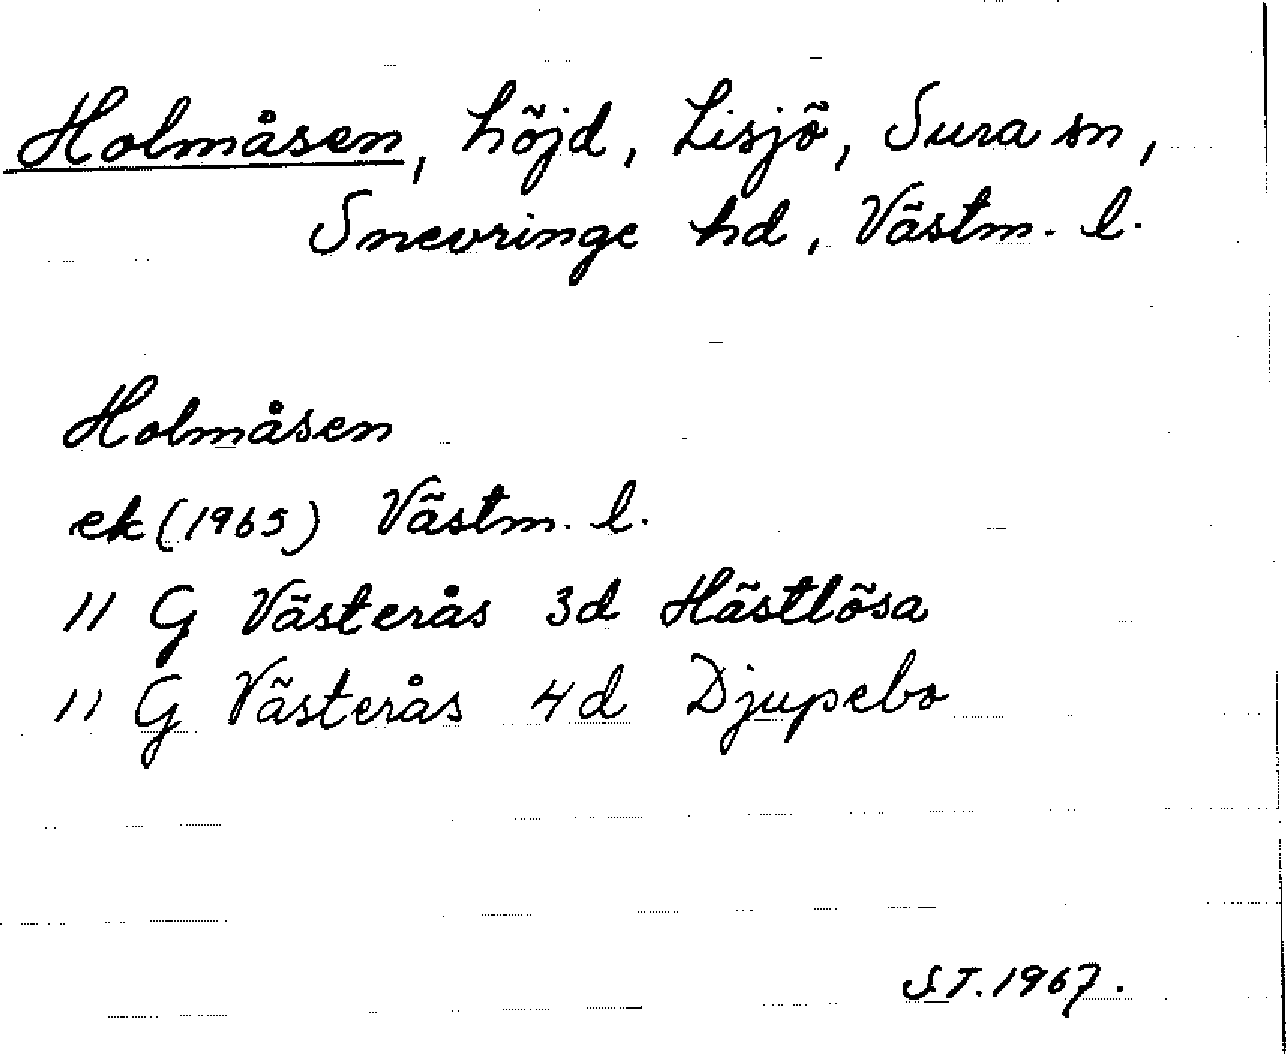 Holmåsen, höjd, Lisjö, Sura sn,
Snevringe hd, Västm. l.
Holmåsen
ek (1965) Västm. l.
11 G Västerås 3d Hästlösa
11 G Västerås 4d Djupebo
S.T. 1967.